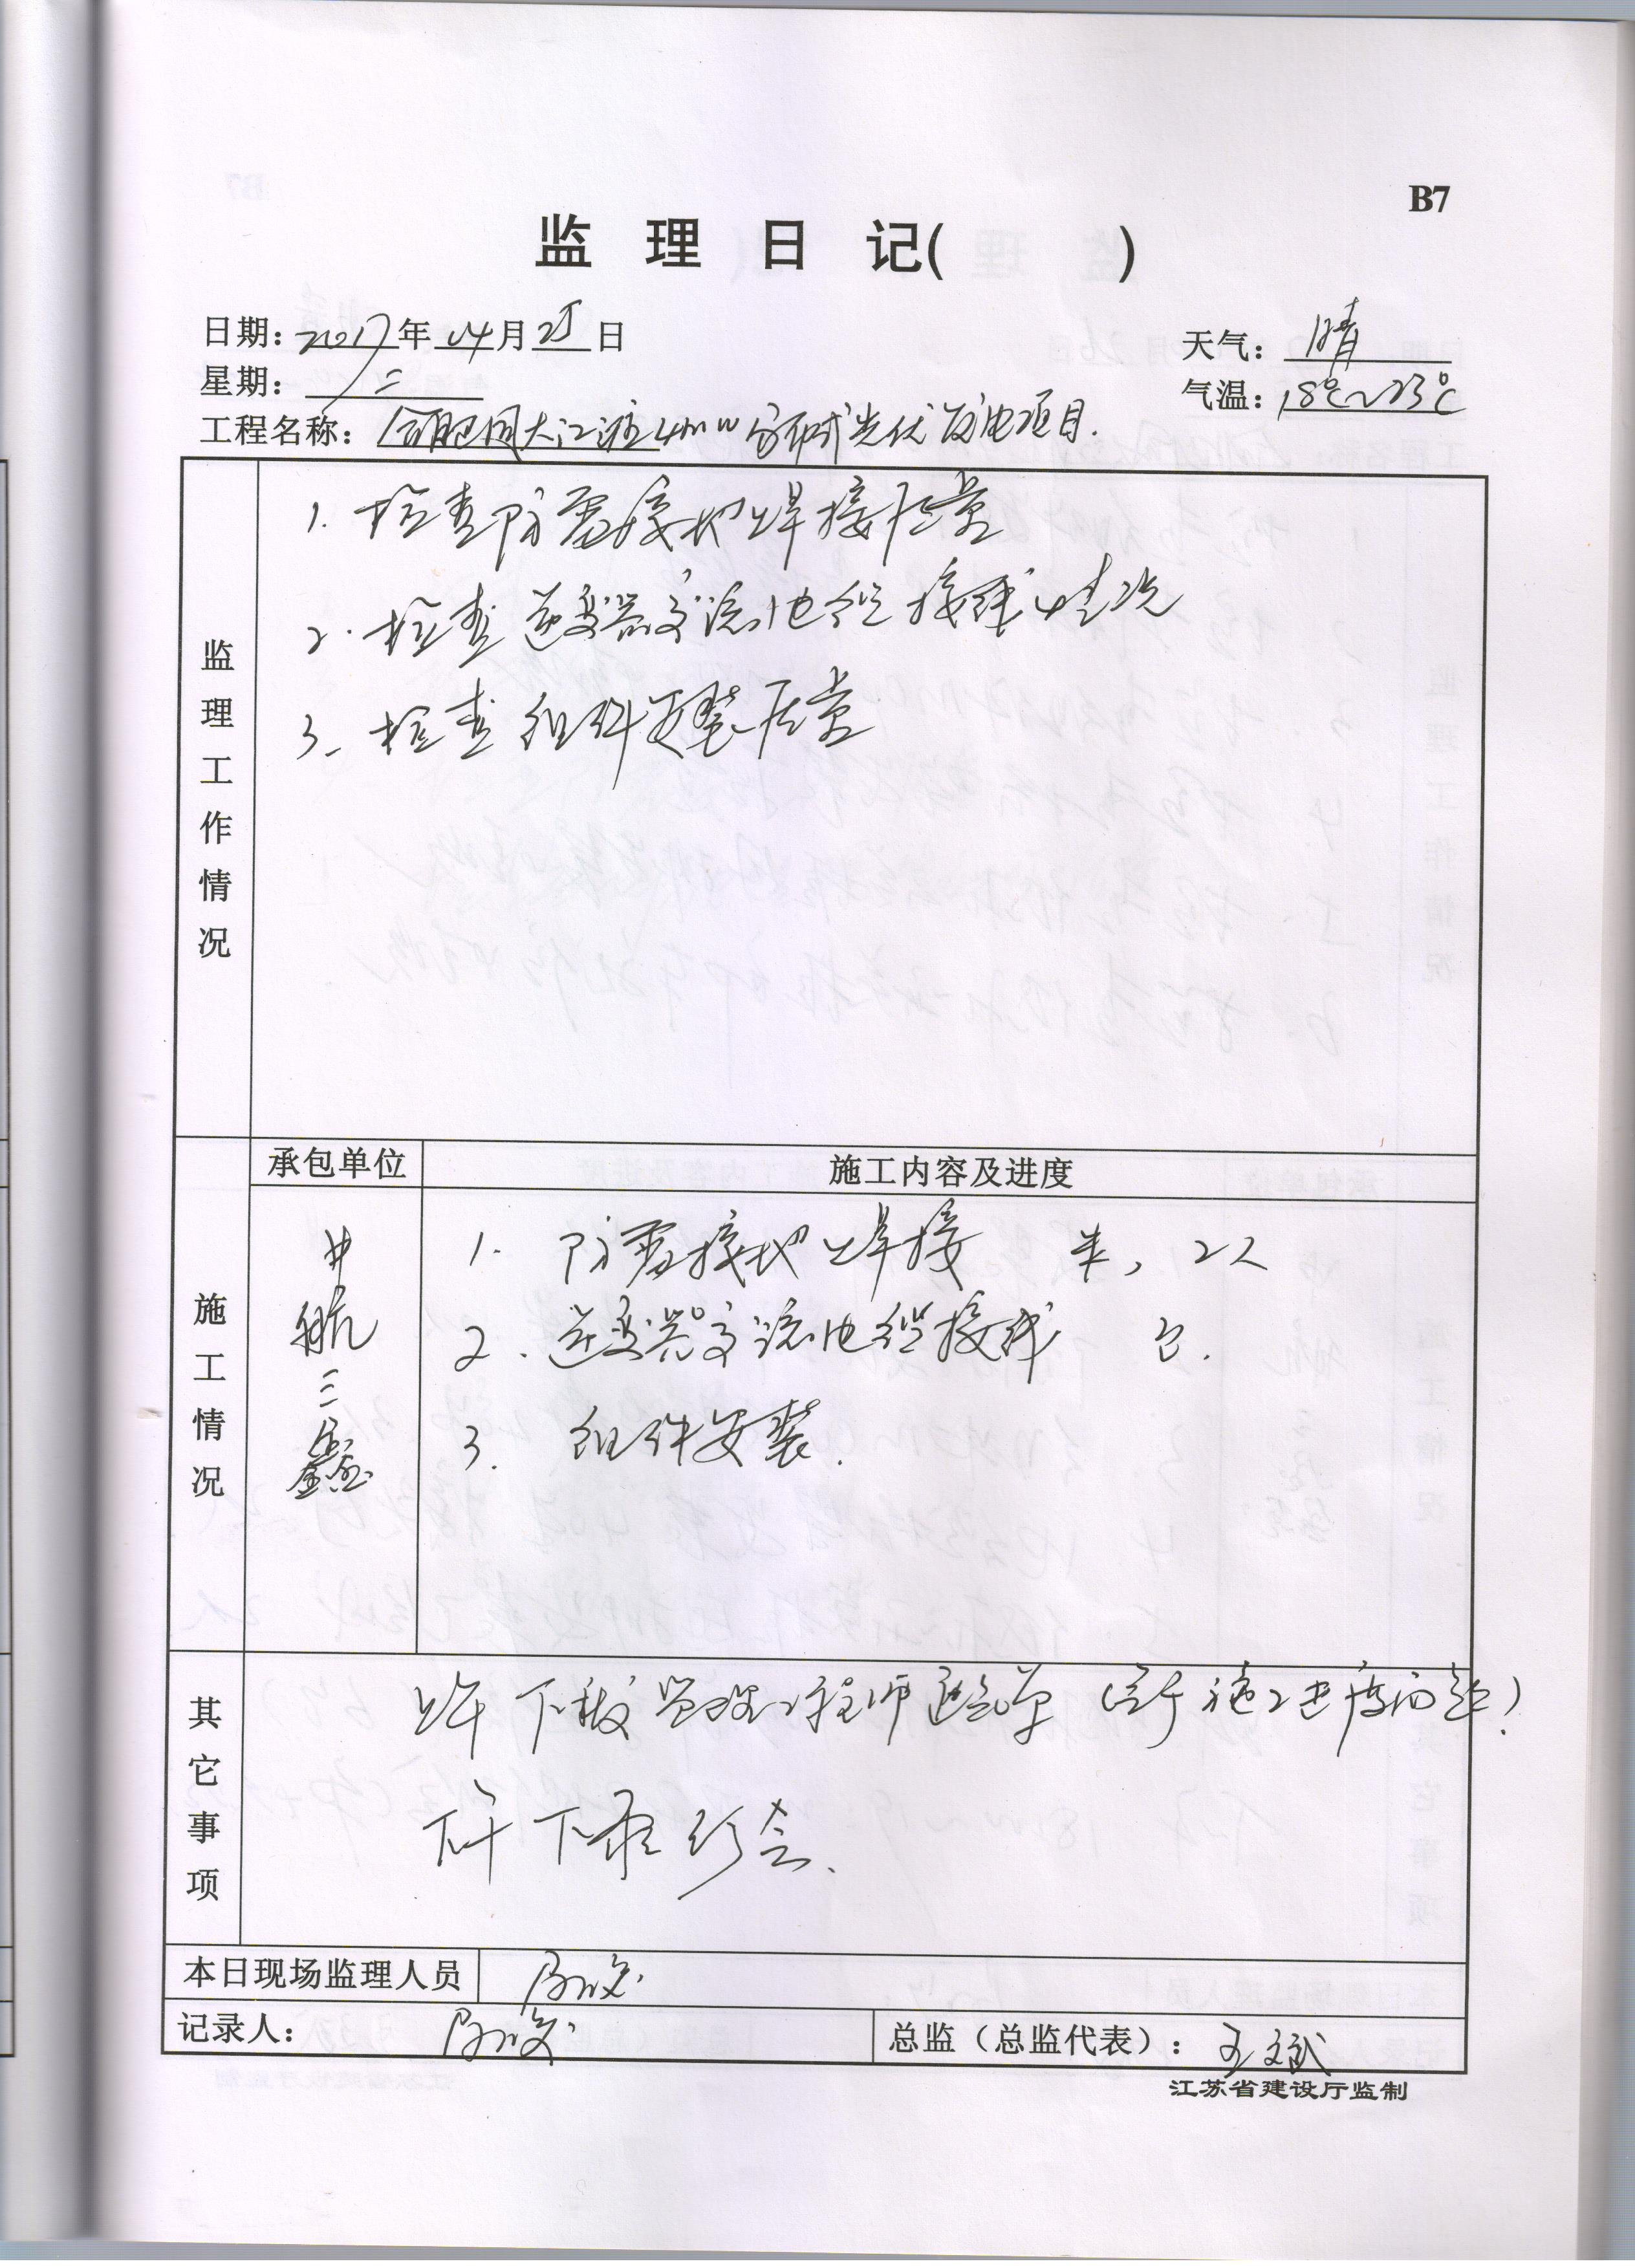 B7
监 理 日 记( )
日期: 2017年 04月 25日
天气: 晴
星期: 二
气温: 18℃~23℃
工程名称: 合肥 大江 4MW分布式光伏发电项目.
监理工作情况
1. 检查防雷接地焊接质量
2. 检查逆变器交流电缆接线情况
3. 检查组件安装质量
承包单位
施工内容及进度
施工情况
中航三鑫
1. 防雷接地焊接 , 2人
2. 逆变器交流电缆接线
3. 组件安装.
其它事项
上午 监理工程师通知单 (关于施工进度问题)
下午 会.
本日现场监理人员
记录人:
总监（总监代表）: 王文斌
江苏省建设厅监制